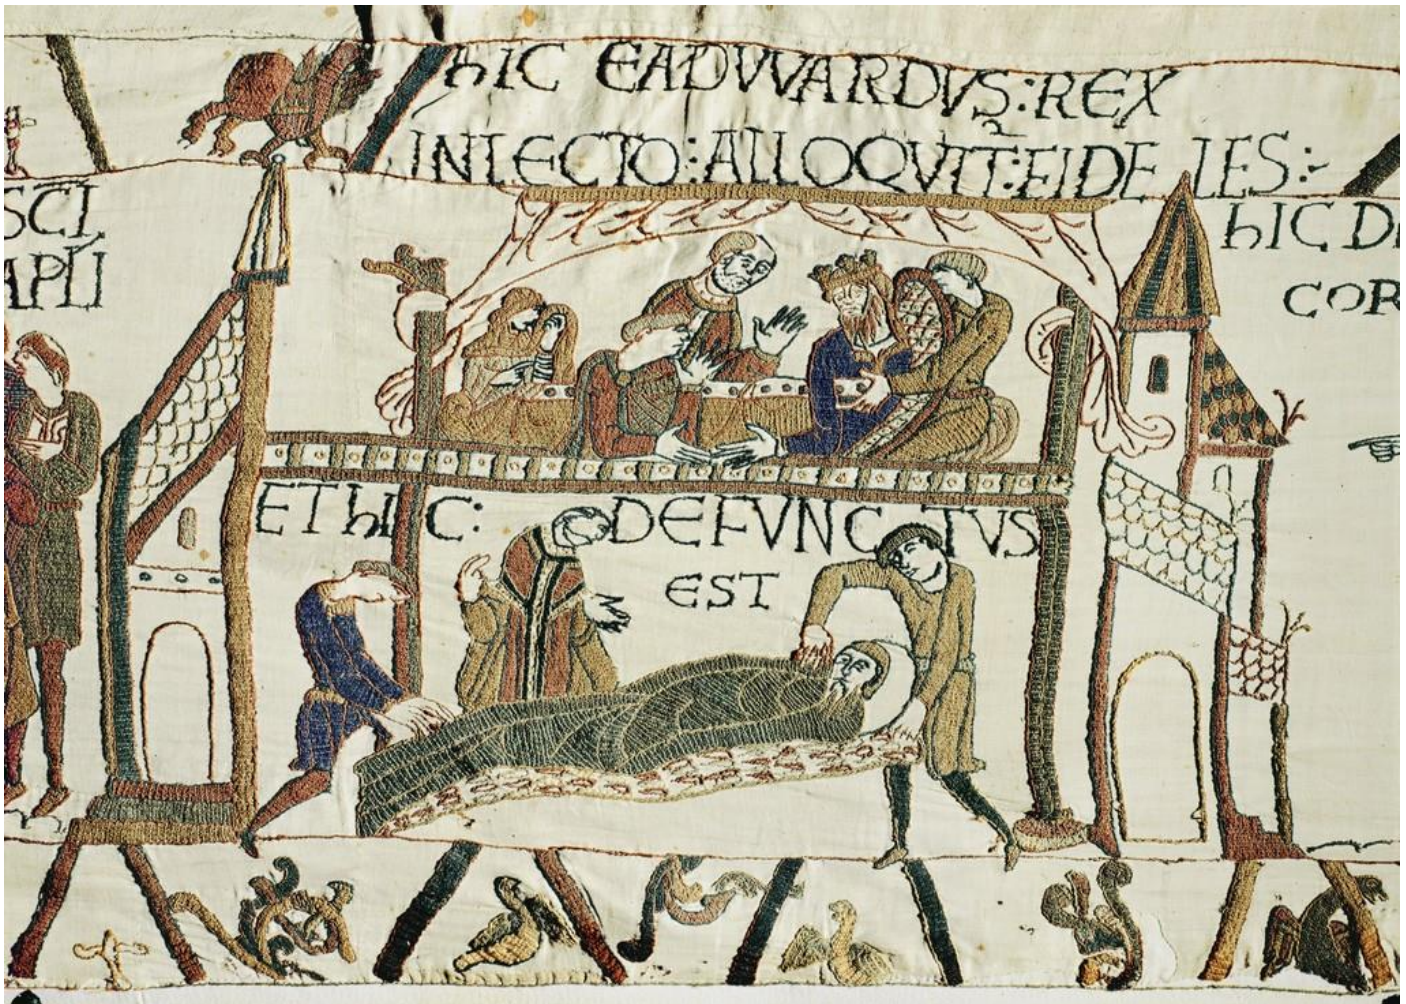 SCI
APLI
hIC EADVVARDVS:REX
INLECTO:ALLOQVIT:FIDELES:
hIC D
COR
ET hIC: DEFVNCTVS
EST